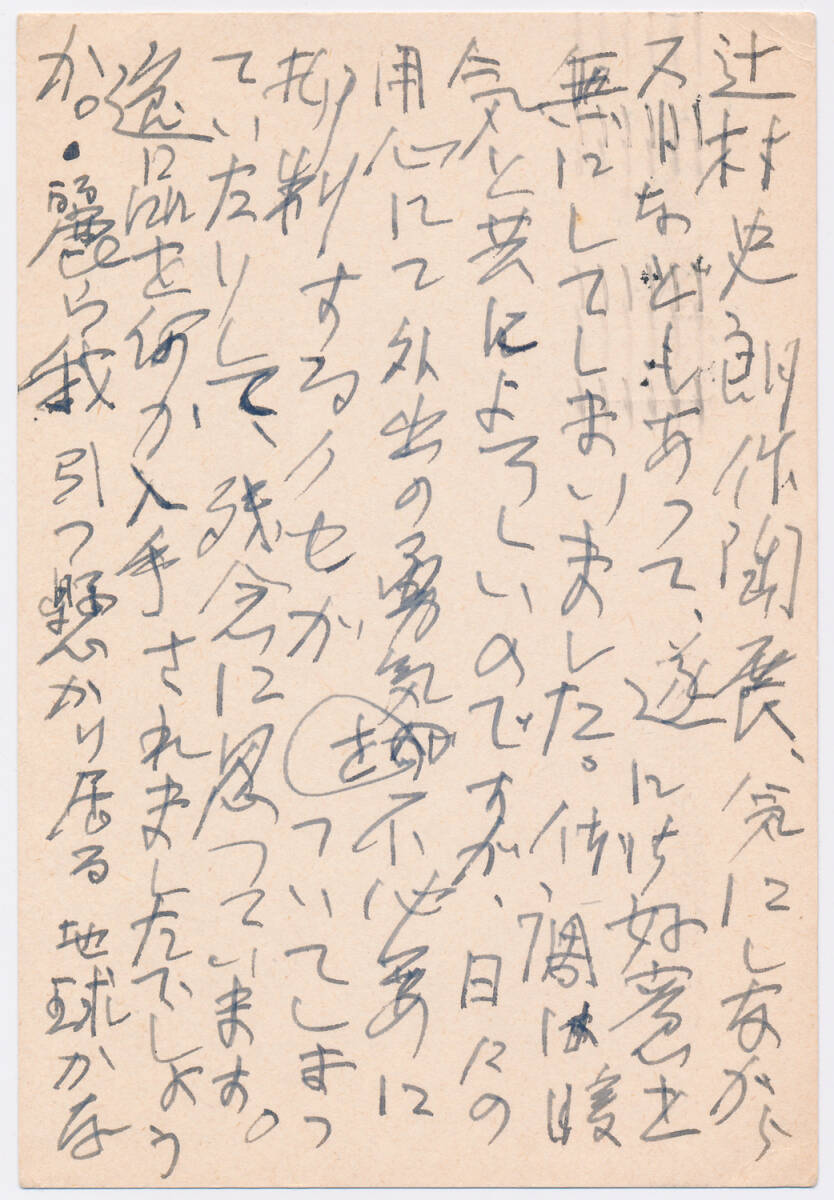 辻村史朗作陶展、気にしながら
又日などもあって、遂に御好意を
無にしてしまいました。体調は暖
気と共によろしいのですが、日々の
用心にて外出の勇気を不必要に
抑制するクセがついてしまっ
ていたりして、残念に思っています。
逸品を何か入手されましたでしょう
か。・麗ら我引っ懸かり居る地球かな